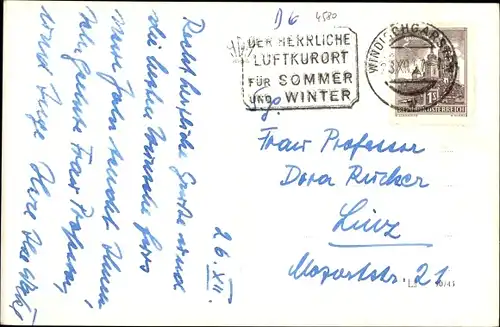 D6 4580
DER HERRLICHE
LUFTKURORT
FÜR SOMMER
UND WINTER
WINDISCHGARSTEN
REPUBLIK ÖSTERREICH
Frau Professor
Dora Rucker
Linz
Mozartstr. 21
26. XII.
Recht herzliche Grüße und
die besten Wünsche fürs
neue Jahr sendet Ihnen,
sehr geehrte Frau Professor,
Ihre